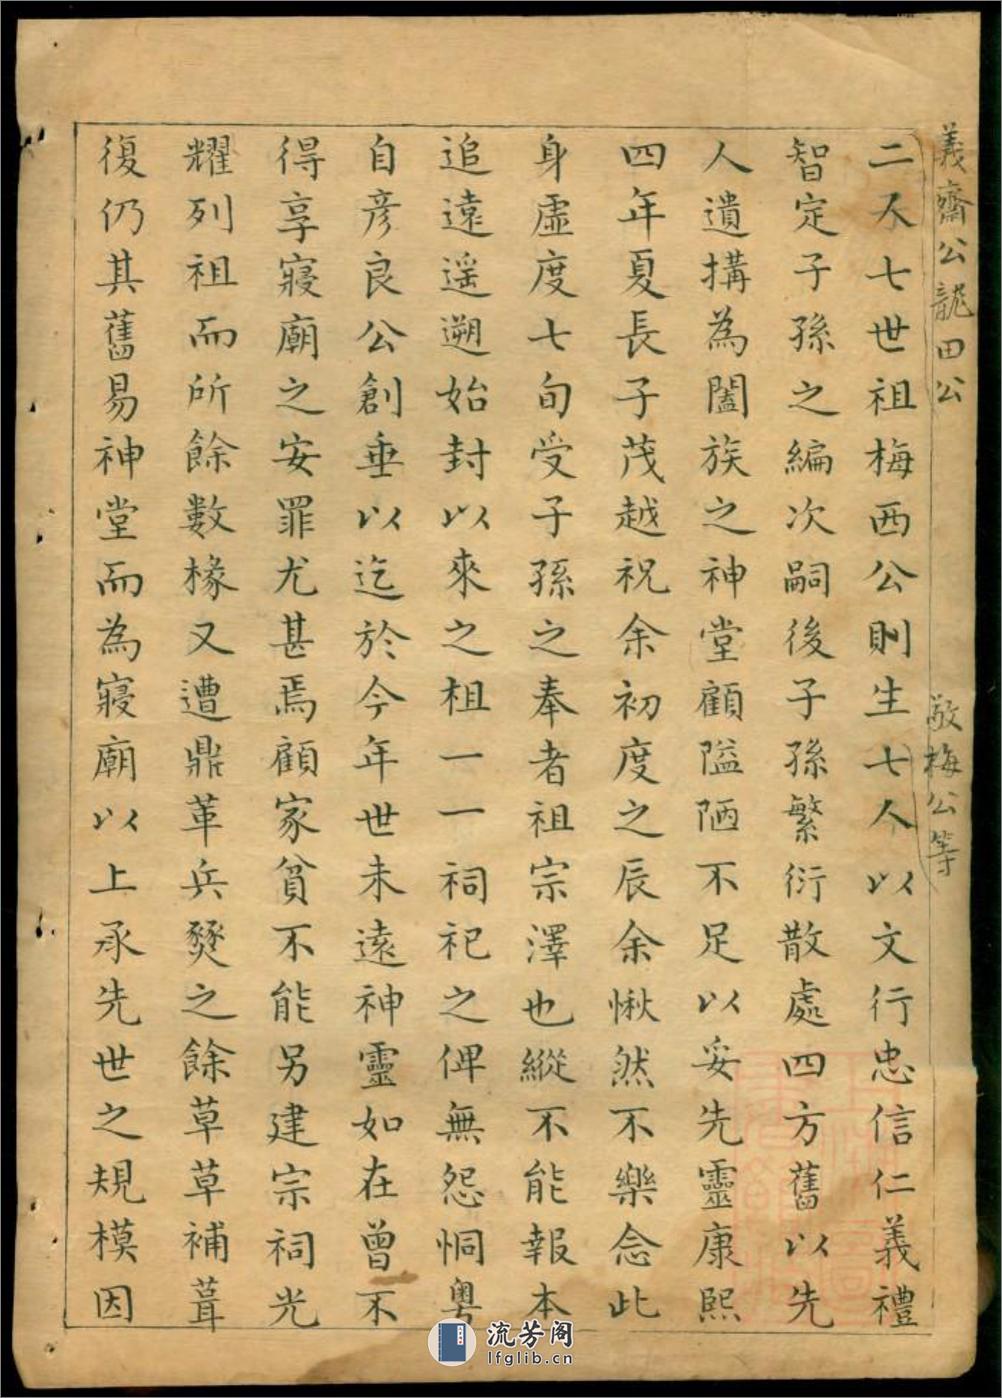 義齋公龍田公
敬梅公等
二人七世祖梅西公則生七人以文行忠信仁義禮
智定子孫之編次嗣後子孫繁衍散處四方舊以先
人遺搆為闔族之神堂顧隘陋不足以妥先靈康熙
四年夏長子茂越祝余初度之辰余愀然不樂念此
身虛度七旬受子孫之奉者祖宗澤也縱不能報本
追遠遥遡始封以來之祖一一祠祀之俾無怨恫粵
自彥良公創垂以迄於今年世未遠神靈如在曾不
得享寢廟之安罪尤甚焉顧家貧不能另建宗祠光
耀列祖而所餘數椽又遭鼎革兵燹之餘草草補葺
復仍其舊易神堂而為寢廟以上承先世之規模因
流芳阁
lfglib.cn